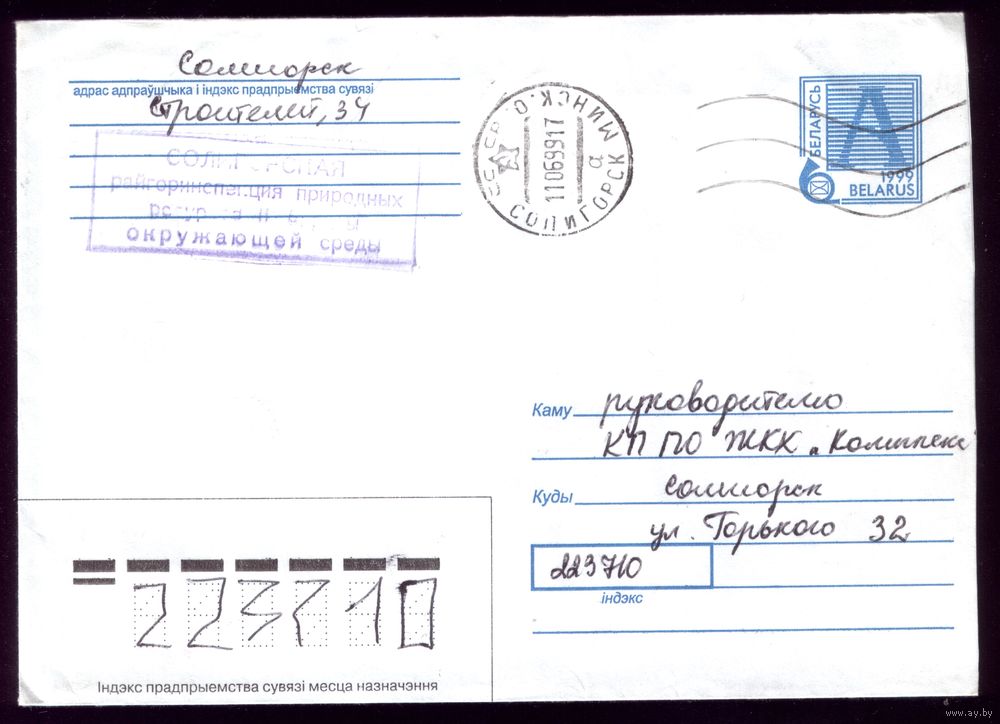 Солигорск
адрас адпраўшчыка і індэкс прадпрыемства сувязі
Строителей, 34
СОЛИГОРСКАЯ
райгоринспекция природных
окружающей среды
СССР МИНСК. О.
11069917
а
СОЛИГОРСК
БЕЛАРУСЬ
A
1999
BELARUS
Каму руководителю
КП ПО ЖКХ „Комплекс
Куды Солигорск
ул. Горького 32
223710
індэкс
223710
Індэкс прадпрыемства сувязі месца назначэння
www.ay.by